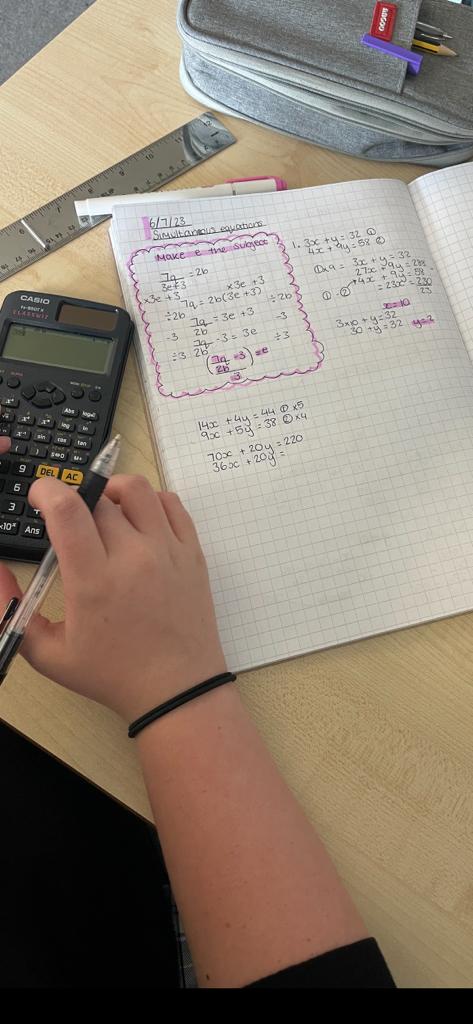 6/7/23
Simultaneous equations
Make e the subject
7a/3e+3 = 2b
x3e+3 x3e+3
7a = 2b(3e+3)
÷2b ÷2b
7a/2b = 3e+3
-3 -3
7a/2b - 3 = 3e
÷3 ÷3
(7a/2b - 3)/3 = e
1. 3x + y = 32 ①
4x + 9y = 58 ②
①x9 = 3x + y = 32
27x + 9y = 288
4x + 9y = 58
①-② = 23x = 230
23
x=10
3x10 + y = 32
30 + y = 32 y=2
14x + 4y = 44 ① x5
9x + 5y = 38 ② x4
70x + 20y = 220
36x + 20y =
CASIO
fx-85GTX
CLASSWIZ
DEL AC
9
6
3
x10ˣ Ans
Abs
sin cos tan
log
ln